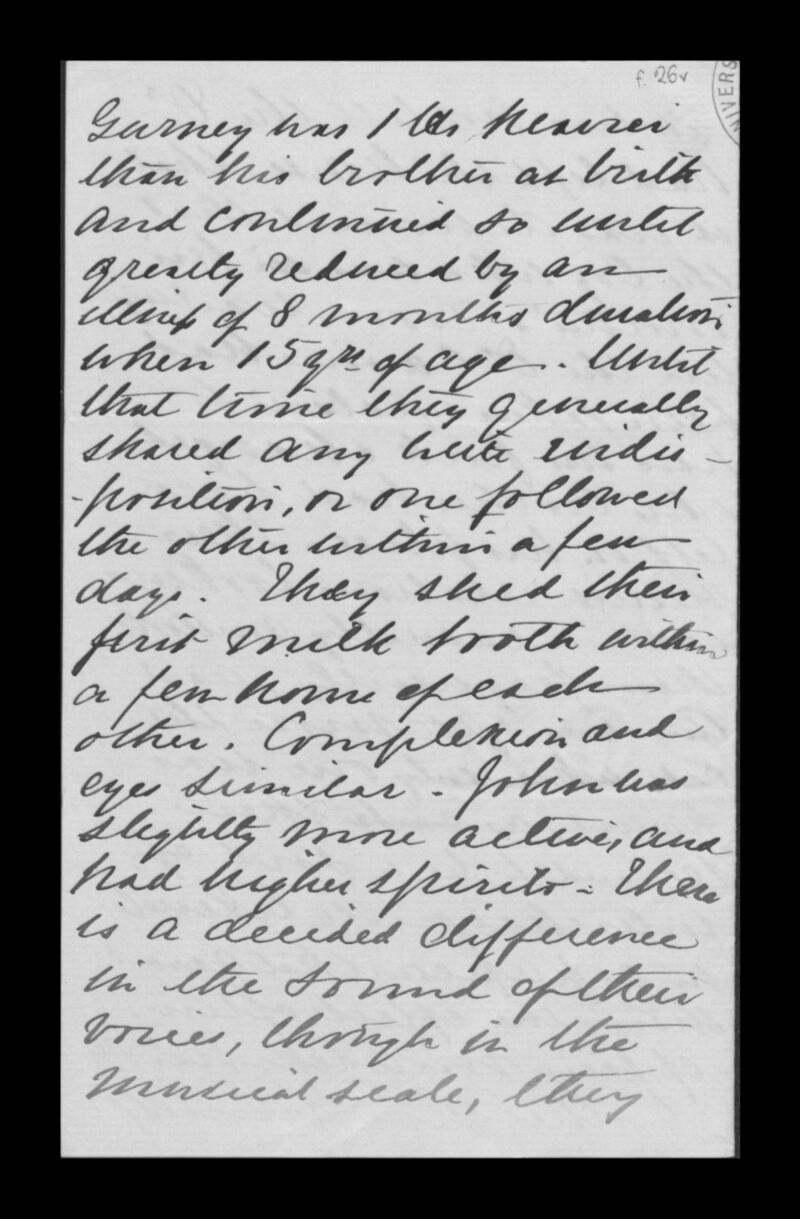 f. 26v
NIVERS
Gurney was 1 lb heavier
than his brother at birth
and continued so until
greatly reduced by an
illness of 8 months duration
when 15 yrs of age. Until
that time they generally
shared any little indis-
-position, or one followed
the other within a few
days. They shed their
first milk tooth within
a few hours of each
other. Complexion and
eyes similar - John was
slightly more active, and
had higher spirits - There
is a decided difference
in the sound of their
voices, though in the
musical scale, they